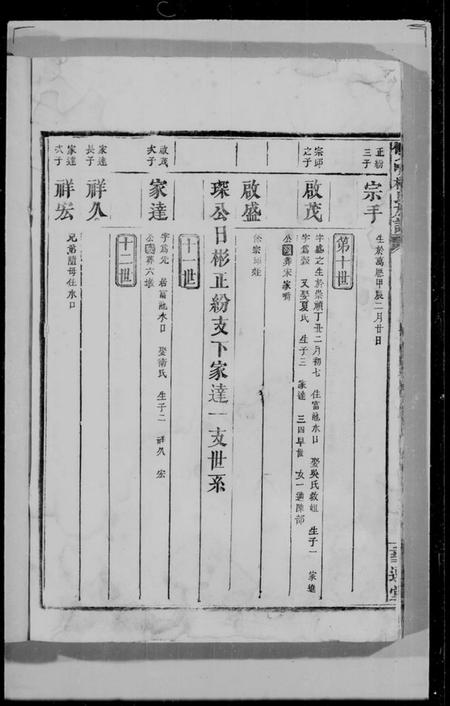 正紛三子
宗手
生於萬歷甲辰二月廿日
第十世
宗邱之子
啟茂
字盛之生於崇禎丁丑二月初七 住富池水口 娶吳氏救姐 生子一 家進
又娶夏氏 生子三 家達 三四早世 女一適陳部
公葬宋家嘴
啟盛
琛公日彬正紛支下家達一支世系
十一世
啟茂次子
家達
字為先 居富池水口 娶蔺氏 生子二 祥久 宏
公葬六墩
十二世
家達長子
祥久
家達次子
祥宏
兄弟隨母住水口